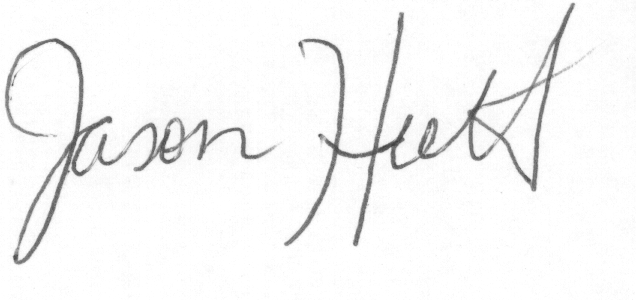 Jason Hutt